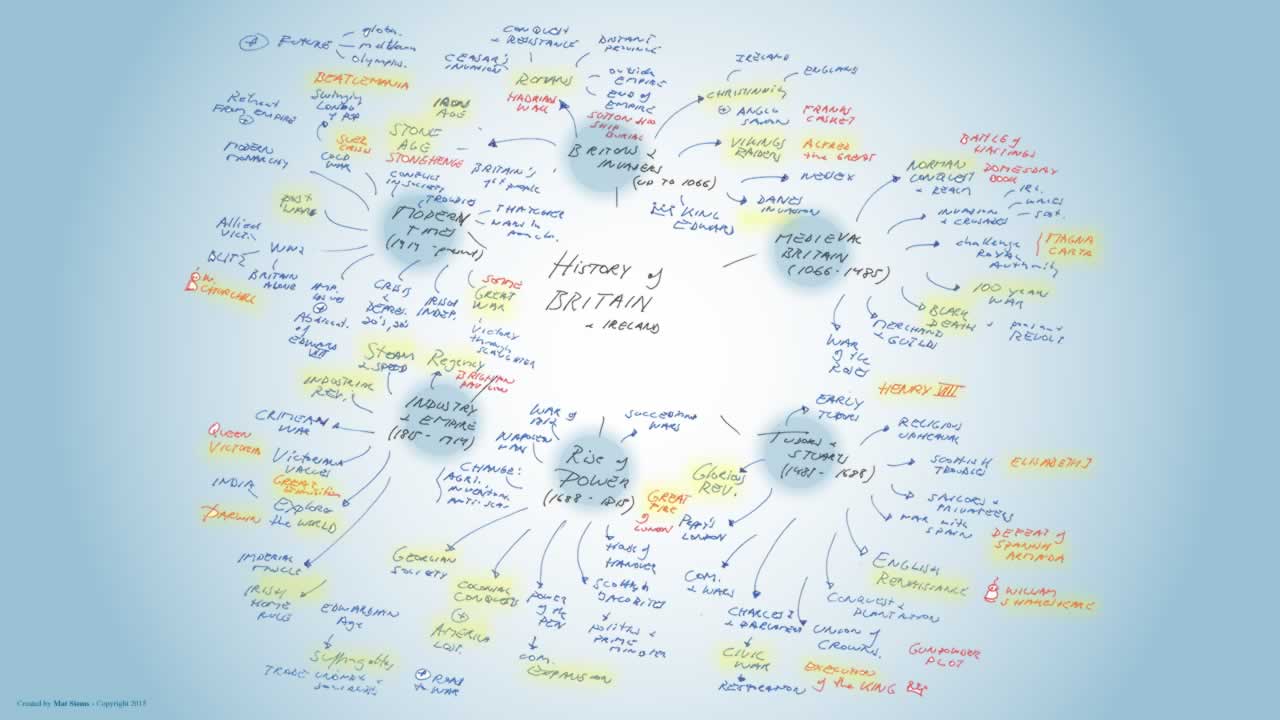 History of
BRITAIN
+ IRELAND
BRITONS &
INVADERS
(UP TO 1066)
CONQUEST
+ RESISTANCE
CEASAR'S
INVASION
ROMANS
DISTANT
PROVINCE
OUTSIDE
EMPIRE
END of
EMPIRE
HADRIAN
WALL
SUTTON HOO
SHIP
BURIAL
IRELAND
ENGLAND
CHRISTIANITY
+ ANGLO
SAXON
FRANKS
CASKET
VIKINGS
RAIDERS
ALFRED
the GREAT
WESSEX
DANES
INVASION
KING
EDWARD
IRON
AGE
STONE
AGE
STONGHENGE
BRITAIN'S
1st people
MEDIEVAL
BRITAIN
(1066 - 1485)
BATTLE of
HASTINGS
NORMAN
CONQUEST
+ REALM
DOMESDAY
BOOK
INVASION
+ CRUSADES
IRE.
WALES
SCOT.
challenge
ROYAL
Authority
MAGNA
CARTA
100 YEARS
WAR
BLACK
DEATH
+ peasant
REVOLT
MERCHANT
& GUILDS
WAR
of the
ROSES
TUDORS &
STUARTS
(1485 - 1688)
EARLY
TUDORS
HENRY VIII
RELIGIOUS
UPHEAVAL
SCOTTISH
TROUBLES
ELISABETH I
SAILORS &
PRIVATEERS
WAR with
SPAIN
DEFEAT of
SPANISH
ARMADA
ENGLISH
RENAISSANCE
WILLIAM
SHAKESPEARE
CONQUEST &
PLANTATION
UNION of
CROWNS.
GUNPOWDER
PLOT
CHARLES I
& PARLAMENT
CIVIL
WAR
RESTORATION
EXECUTION
of the KING
COM.
& WARS
Peppy's
LONDON
GREAT
FIRE
of
LONDON
Glorious
REV.
Rise of
POWER
(1688 - 1815)
SUCCESSION
WARS
WAR of
1812
NAPOLEON
WARS
CHANGE:
AGRI.
INVENTION.
ANTI-SLAV.
GEORGIAN
SOCIETY
COLONIAL
CONQUESTS
+
AMERICA
LOST.
POWER
of the
PEN
COM.
EXPANSION
SCOTTISH
JACOBITES
politics &
PRIME
MINISTER
HOUSE of
HANOVER
INDUSTRY
& EMPIRE
(1815 - 1914)
Regency
BRIGHTON
PAVILION
STEAM
& SPEED
INDUSTRIAL
REV.
CRIMEAN
WAR
QUEEN
VICTORIA
VICTORIAN
VALUES
GREAT
Exhibition
INDIA
Explore
the WORLD
DARWIN
IMPERIAL
MUSCLE
IRISH
HOME
RULE
EDWARDIAN
Age
Suffragettes
TRADE UNIONS &
SOCIALISTS
+ ROAD
to WAR
MODERN
TIMES
(1914 - present)
SOMME
GREAT
WAR
VICTORY
through
SLAUGHTER
IRISH
INDEP.
CRISIS
&
DEPRES.
20's, 30's
IMP.
ISSUES
+
Abdicat.
of
EDWARD
VIII
WW2
Allied
Vict.
BLITZ
BRITAIN
ALONE
W.
CHURCHILL
POST
WAR
MODERN
MONARCHY
Retreat
FROM EMPIRE
+
SUEZ
CRISIS
COLD
WAR
BEATLEMANIA
Swinging
LONDON
& POP
CONFLICT
IN SOCIETY
TROUBLES
THATCHER
+ FUTURE
global.
meltdown
olympics.
Created by Mat Siems - Copyright 2015